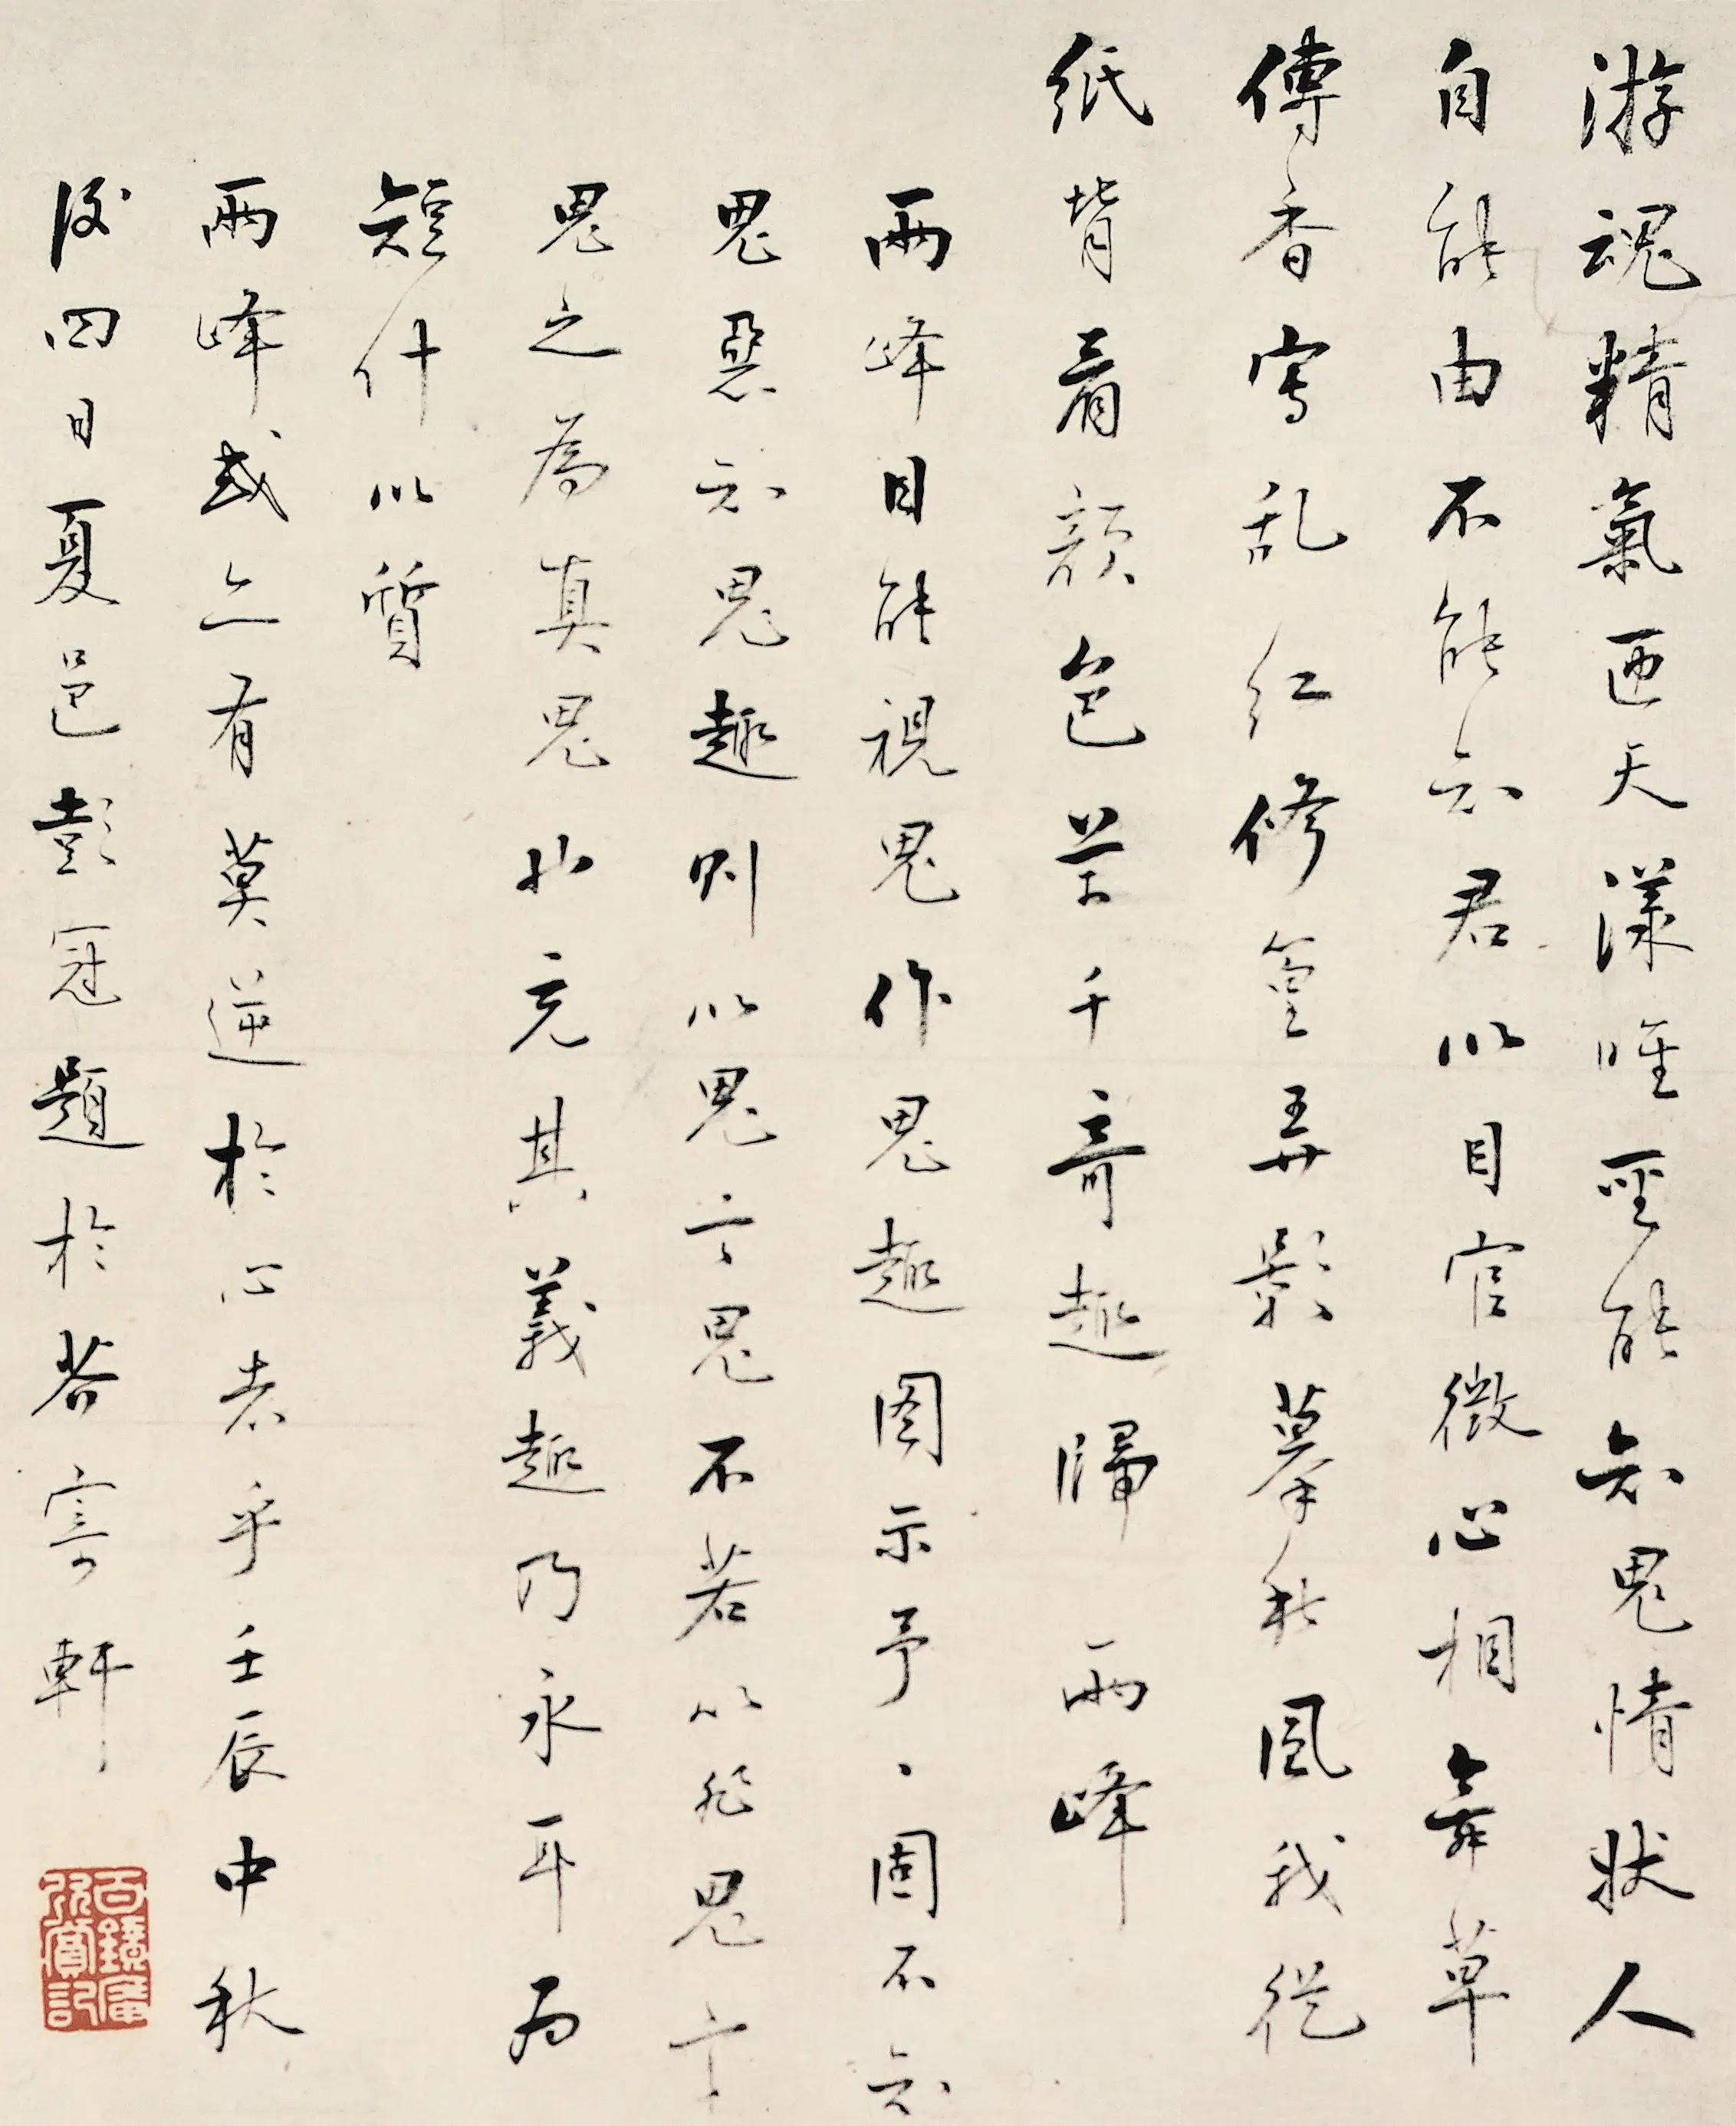 游魂精氣匝天漾唯聖能知鬼情狀人
自能由不能知君以目官微心相舞草
傳香寫乱紅修篁弄影摹秋風我從
紙背看顏色楽千奇趣歸 兩峰
兩峰目能視鬼作鬼趣图示予、固不知
鬼惡知鬼趣则以鬼言鬼不若以非鬼言
鬼之為真鬼也充其義趣乃永耳為
短什以質
兩峰或亦有莫逆於心者乎壬辰中秋
後四日夏邑彭冠題於若寄軒
石鏡庵
欣賞記